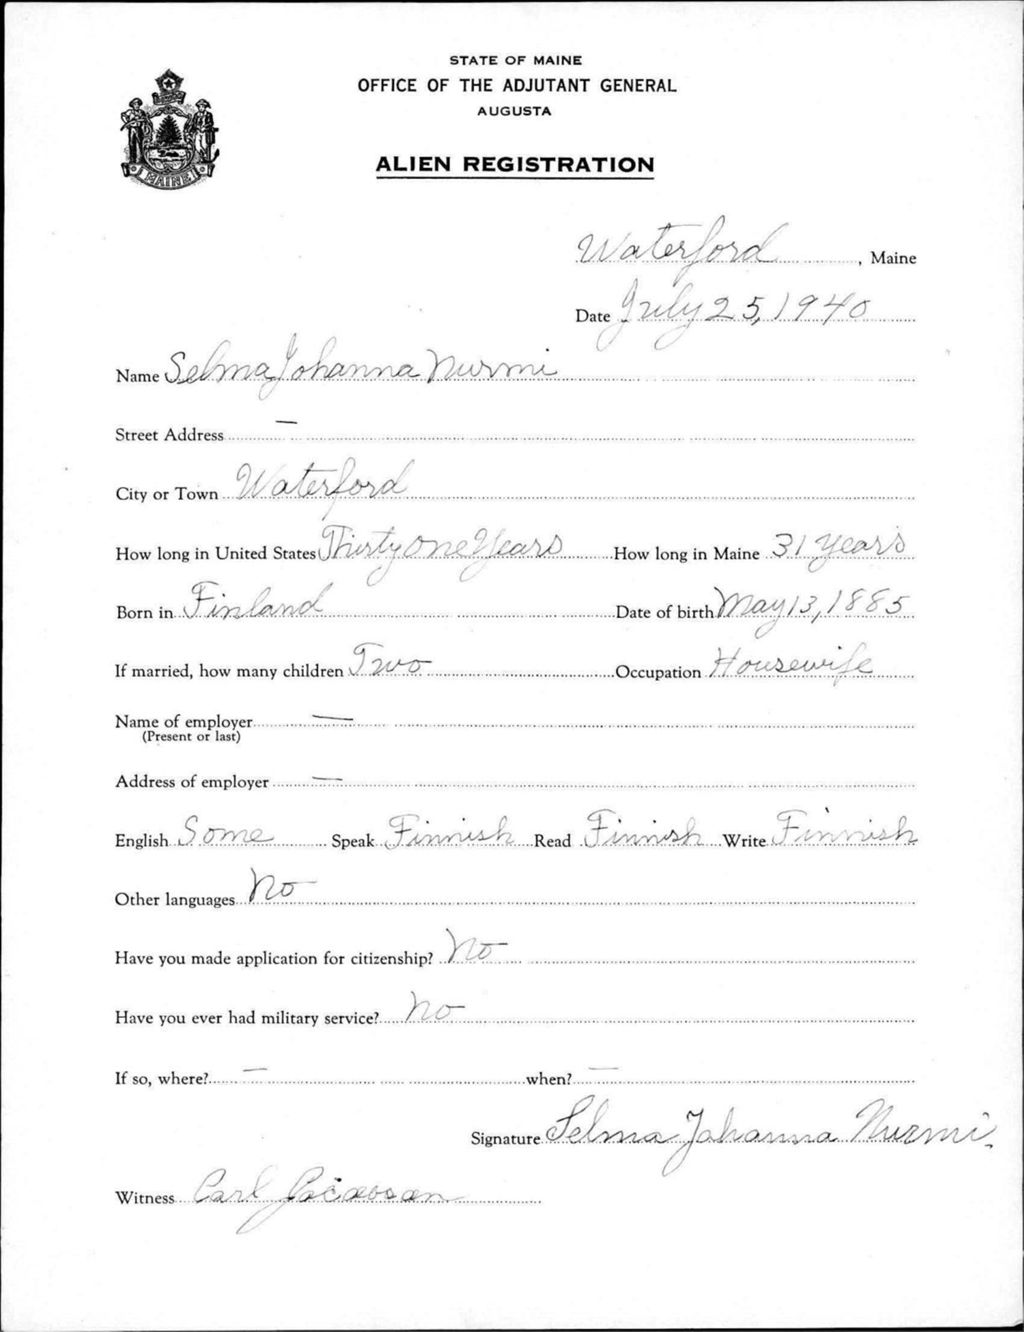 STATE OF MAINE
OFFICE OF THE ADJUTANT GENERAL
AUGUSTA
ALIEN REGISTRATION
MAINE
Waterford, Maine
Date July 25, 1940
Name Selma Johanna Nurmi
Street Address —
City or Town Waterford
How long in United States Thirty One Years How long in Maine 31 Years
Born in Finland Date of birth May 13, 1885
If married, how many children Two Occupation Housewife
Name of employer —
(Present or last)
Address of employer —
English Some Speak Finnish Read Finnish Write Finnish
Other languages No
Have you made application for citizenship? No
Have you ever had military service? No
If so, where? — when? —
Signature Selma Johanna Nurmi.
Witness Carl Jacobson